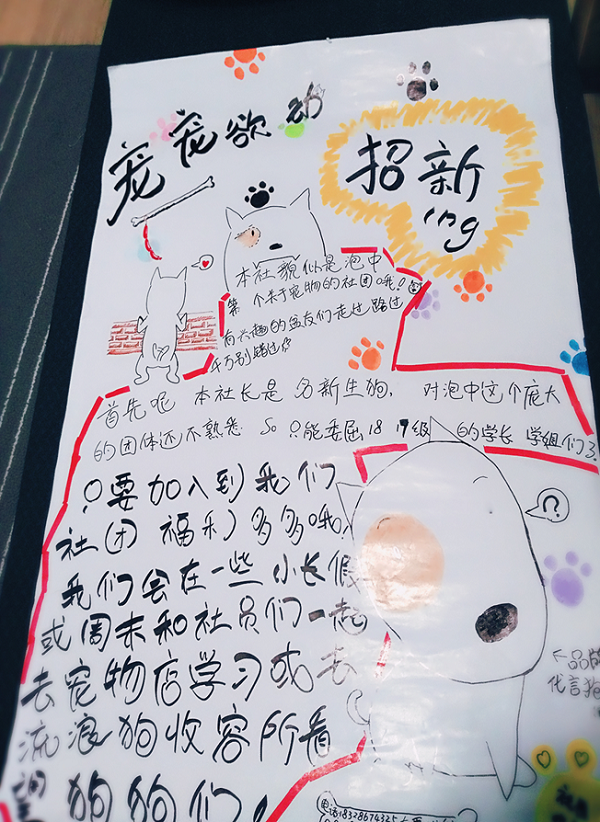 宠宠欲动
招新
ing
本社貌似是泡中
第一个关于宠物的社团哦!
有兴趣的盆友们走过路过
千万别错过
首先呢 本社长是名新生狗, 对泡中这个庞大
的团体还不熟悉 So 只能委屈18 17级 的学长 学姐们了
只要加入到我们
社团 福利多多哦,
我们会在一些小长假
或周末和社员们一起
去宠物店学习或去
流浪狗收容所看
望狗狗们!
←品牌
代言狗
电话:18328674325